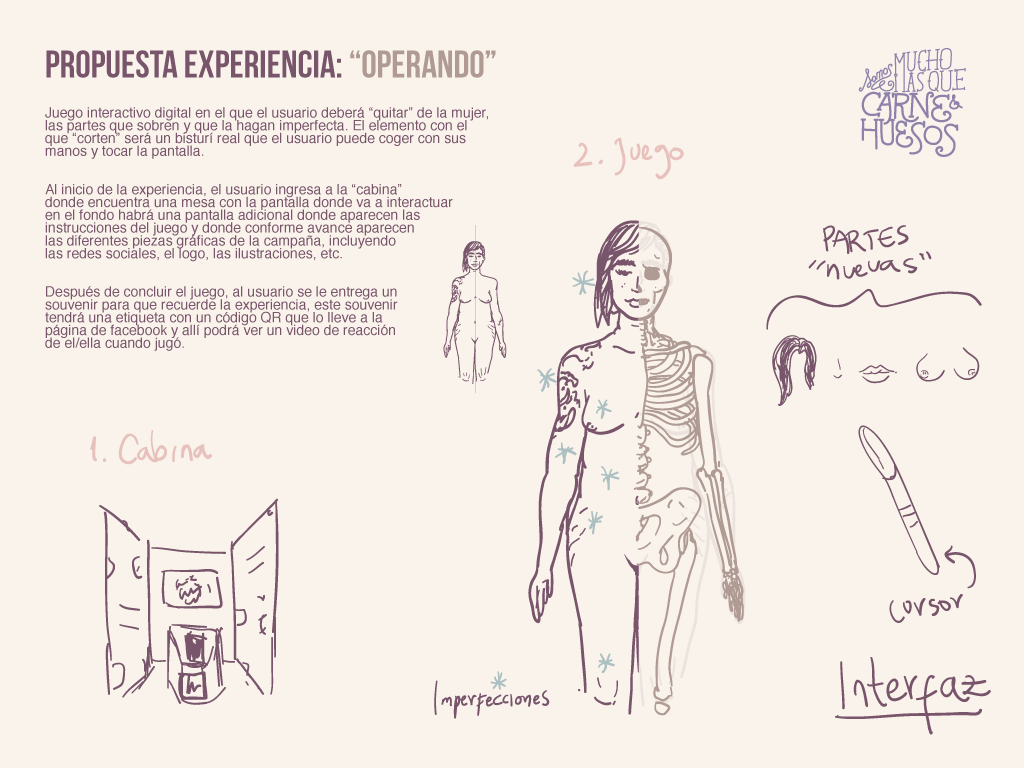 PROPUESTA EXPERIENCIA: “OPERANDO”
Juego interactivo digital en el que el usuario deberá “quitar” de la mujer,
las partes que sobren y que la hagan imperfecta. El elemento con el
que “corten” será un bisturí real que el usuario puede coger con sus
manos y tocar la pantalla.
Al inicio de la experiencia, el usuario ingresa a la “cabina”
donde encuentra una mesa con la pantalla donde va a interactuar
en el fondo habrá una pantalla adicional donde aparecen las
instrucciones del juego y donde conforme avance aparecen
las diferentes piezas gráficas de la campaña, incluyendo
las redes sociales, el logo, las ilustraciones, etc.
Después de concluir el juego, al usuario se le entrega un
souvenir para que recuerde la experiencia, este souvenir
tendrá una etiqueta con un código QR que lo lleve a la
página de facebook y allí podrá ver un video de reacción
de el/ella cuando jugó.
Somos MUCHO
MÁS QUE
CARNE &
HUESOS
2. Juego
PARTES
“nuevas”
1. Cabina
cursor
Imperfecciones
Interfaz